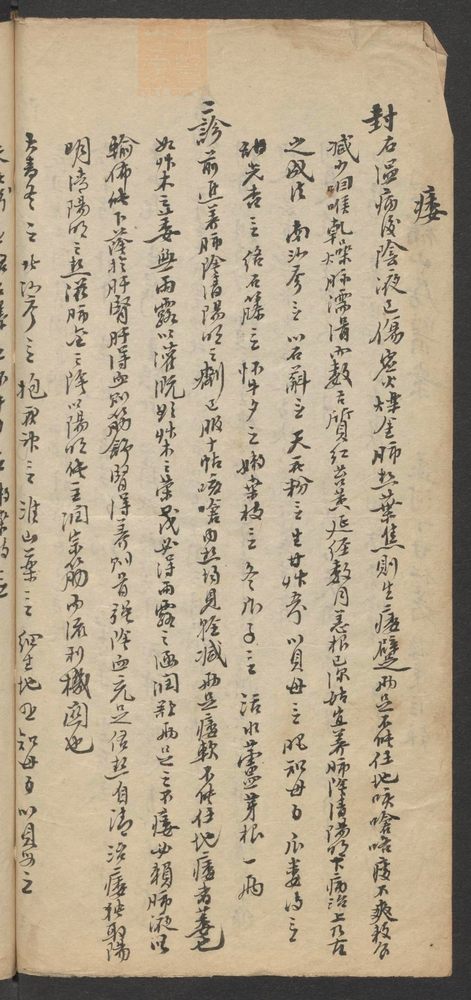 痿
封右 温病後陰液已傷虛火爍金肺熱葉焦則生痿躄兩足不能任地咳嗆咯痰不爽穀食
減少咽喉乾燥脈濡滑而數舌質紅苔黃延經數月恙根已深姑宜養肺陰清陽明下病治上乃古
之成法 南沙參三 川石斛三 天花粉三 生甘草 川貝母三 肥知母 瓜蔞皮三
甜光杏三 絡石藤三 怀牛夕二 嫩桑枝三 冬瓜子三 活水蘆芽根一兩
二診 前進養肺陰清陽明之劑已服十帖咳嗆內熱均見輕減兩足痿軟不能任地痿者萎也
如草木之萎無雨露以灌溉如草木之榮茂必得雨露之涵潤欲兩足之不痿必賴肺液以
輸佈能下蔭於肝腎肝得血則筋舒腎得養則骨強陰血充足絡熱自清治痿獨取陽
明清陽明之熱滋肺金之陰以陽明能主潤宗筋而流利機關也
大麥冬三 北沙參三 抱茯神三 淮山藥三 細生地 肥知母 川貝母三